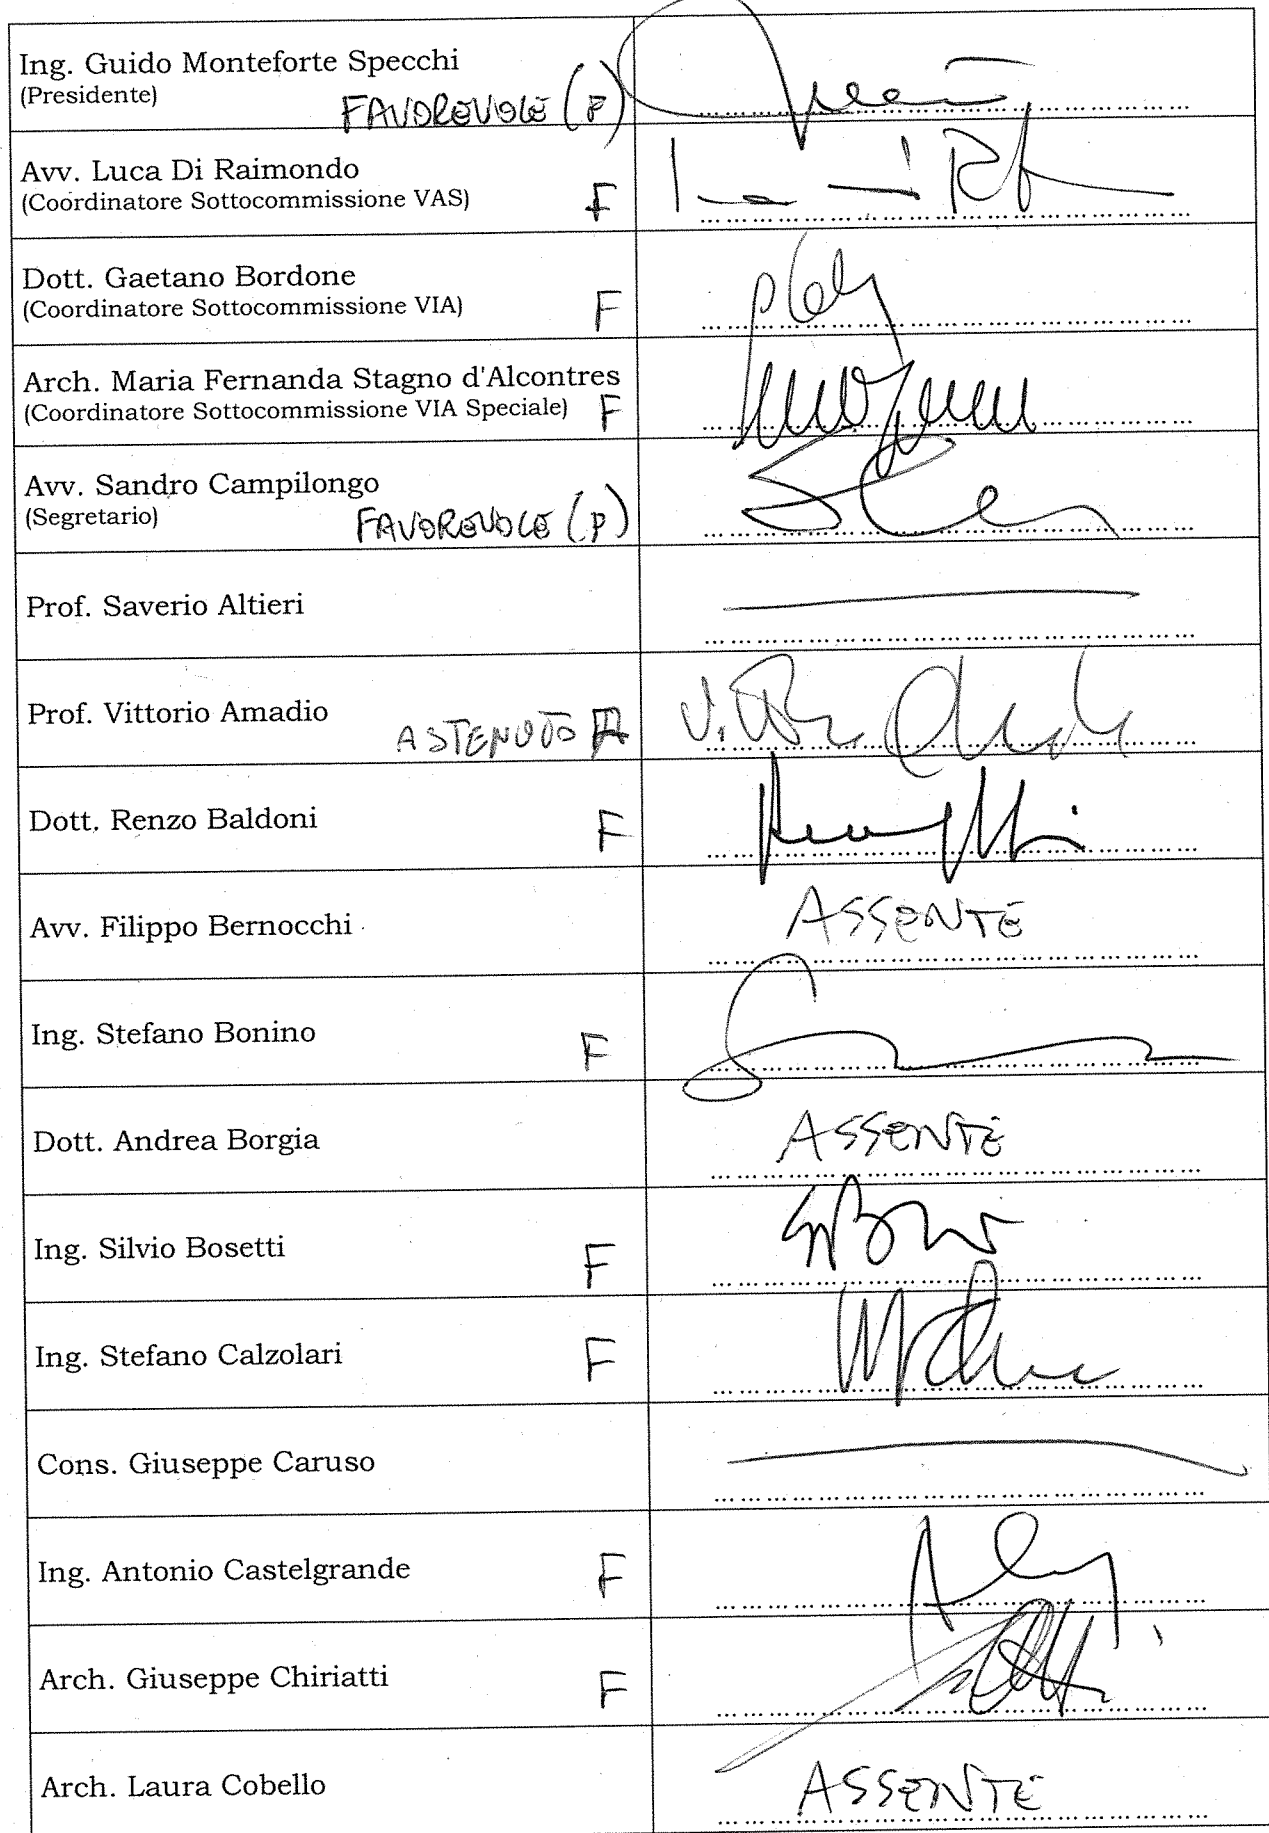 Ing. Guido Monteforte Specchi
(Presidente)
FAVOREVOLE (P)
Avv. Luca Di Raimondo
(Coordinatore Sottocommissione VAS)
F
Dott. Gaetano Bordone
(Coordinatore Sottocommissione VIA)
F
Arch. Maria Fernanda Stagno d'Alcontres
(Coordinatore Sottocommissione VIA Speciale)
F
Avv. Sandro Campilongo
(Segretario)
FAVOREVOLE (P)
Prof. Saverio Altieri
Prof. Vittorio Amadio
ASTENUTO
Dott. Renzo Baldoni
F
Avv. Filippo Bernocchi
ASSENTE
Ing. Stefano Bonino
F
Dott. Andrea Borgia
ASSENTE
Ing. Silvio Bosetti
F
Ing. Stefano Calzolari
F
Cons. Giuseppe Caruso
Ing. Antonio Castelgrande
F
Arch. Giuseppe Chiriatti
F
Arch. Laura Cobello
ASSENTE